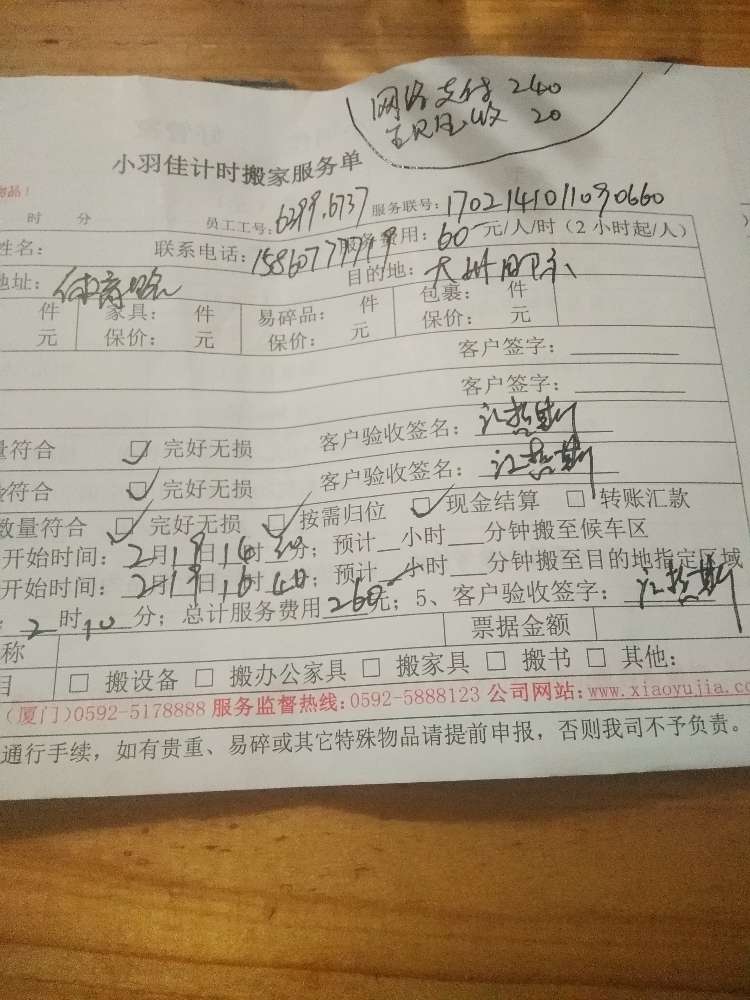 网络支付 240
现收 20
小羽佳计时搬家服务单
物品！
时 分 员工工号：6299.6737 服务联号：1702141011090660
姓名： 联系电话：15860777949 服务费用：60元/人/时（2小时起/人）
地址：体育路 目的地：
件 家具： 件 易碎品： 件 包裹： 件
元 保价： 元 保价： 元 保价： 元
客户签字：
客户签字：
量符合 ☑ 完好无损 客户验收签名：
符合 ☑ 完好无损 客户验收签名：
数量符合 ☑ 完好无损 ☑ 按需归位 ☑ 现金结算 □ 转账汇款
开始时间：2月19日16时 分；预计 小时 分钟搬至候车区
开始时间：2月19日16时40分；预计 小时 分钟搬至目的地指定区域
：2时10分；总计服务费用260元；5、客户验收签字：
称 票据金额
目 □ 搬设备 □ 搬办公家具 □ 搬家具 □ 搬书 □ 其他：
（厦门）0592-5178888 服务监督热线：0592-5888123 公司网站：www.xiaoyujia.co
通行手续，如有贵重、易碎或其它特殊物品请提前申报，否则我司不予负责。